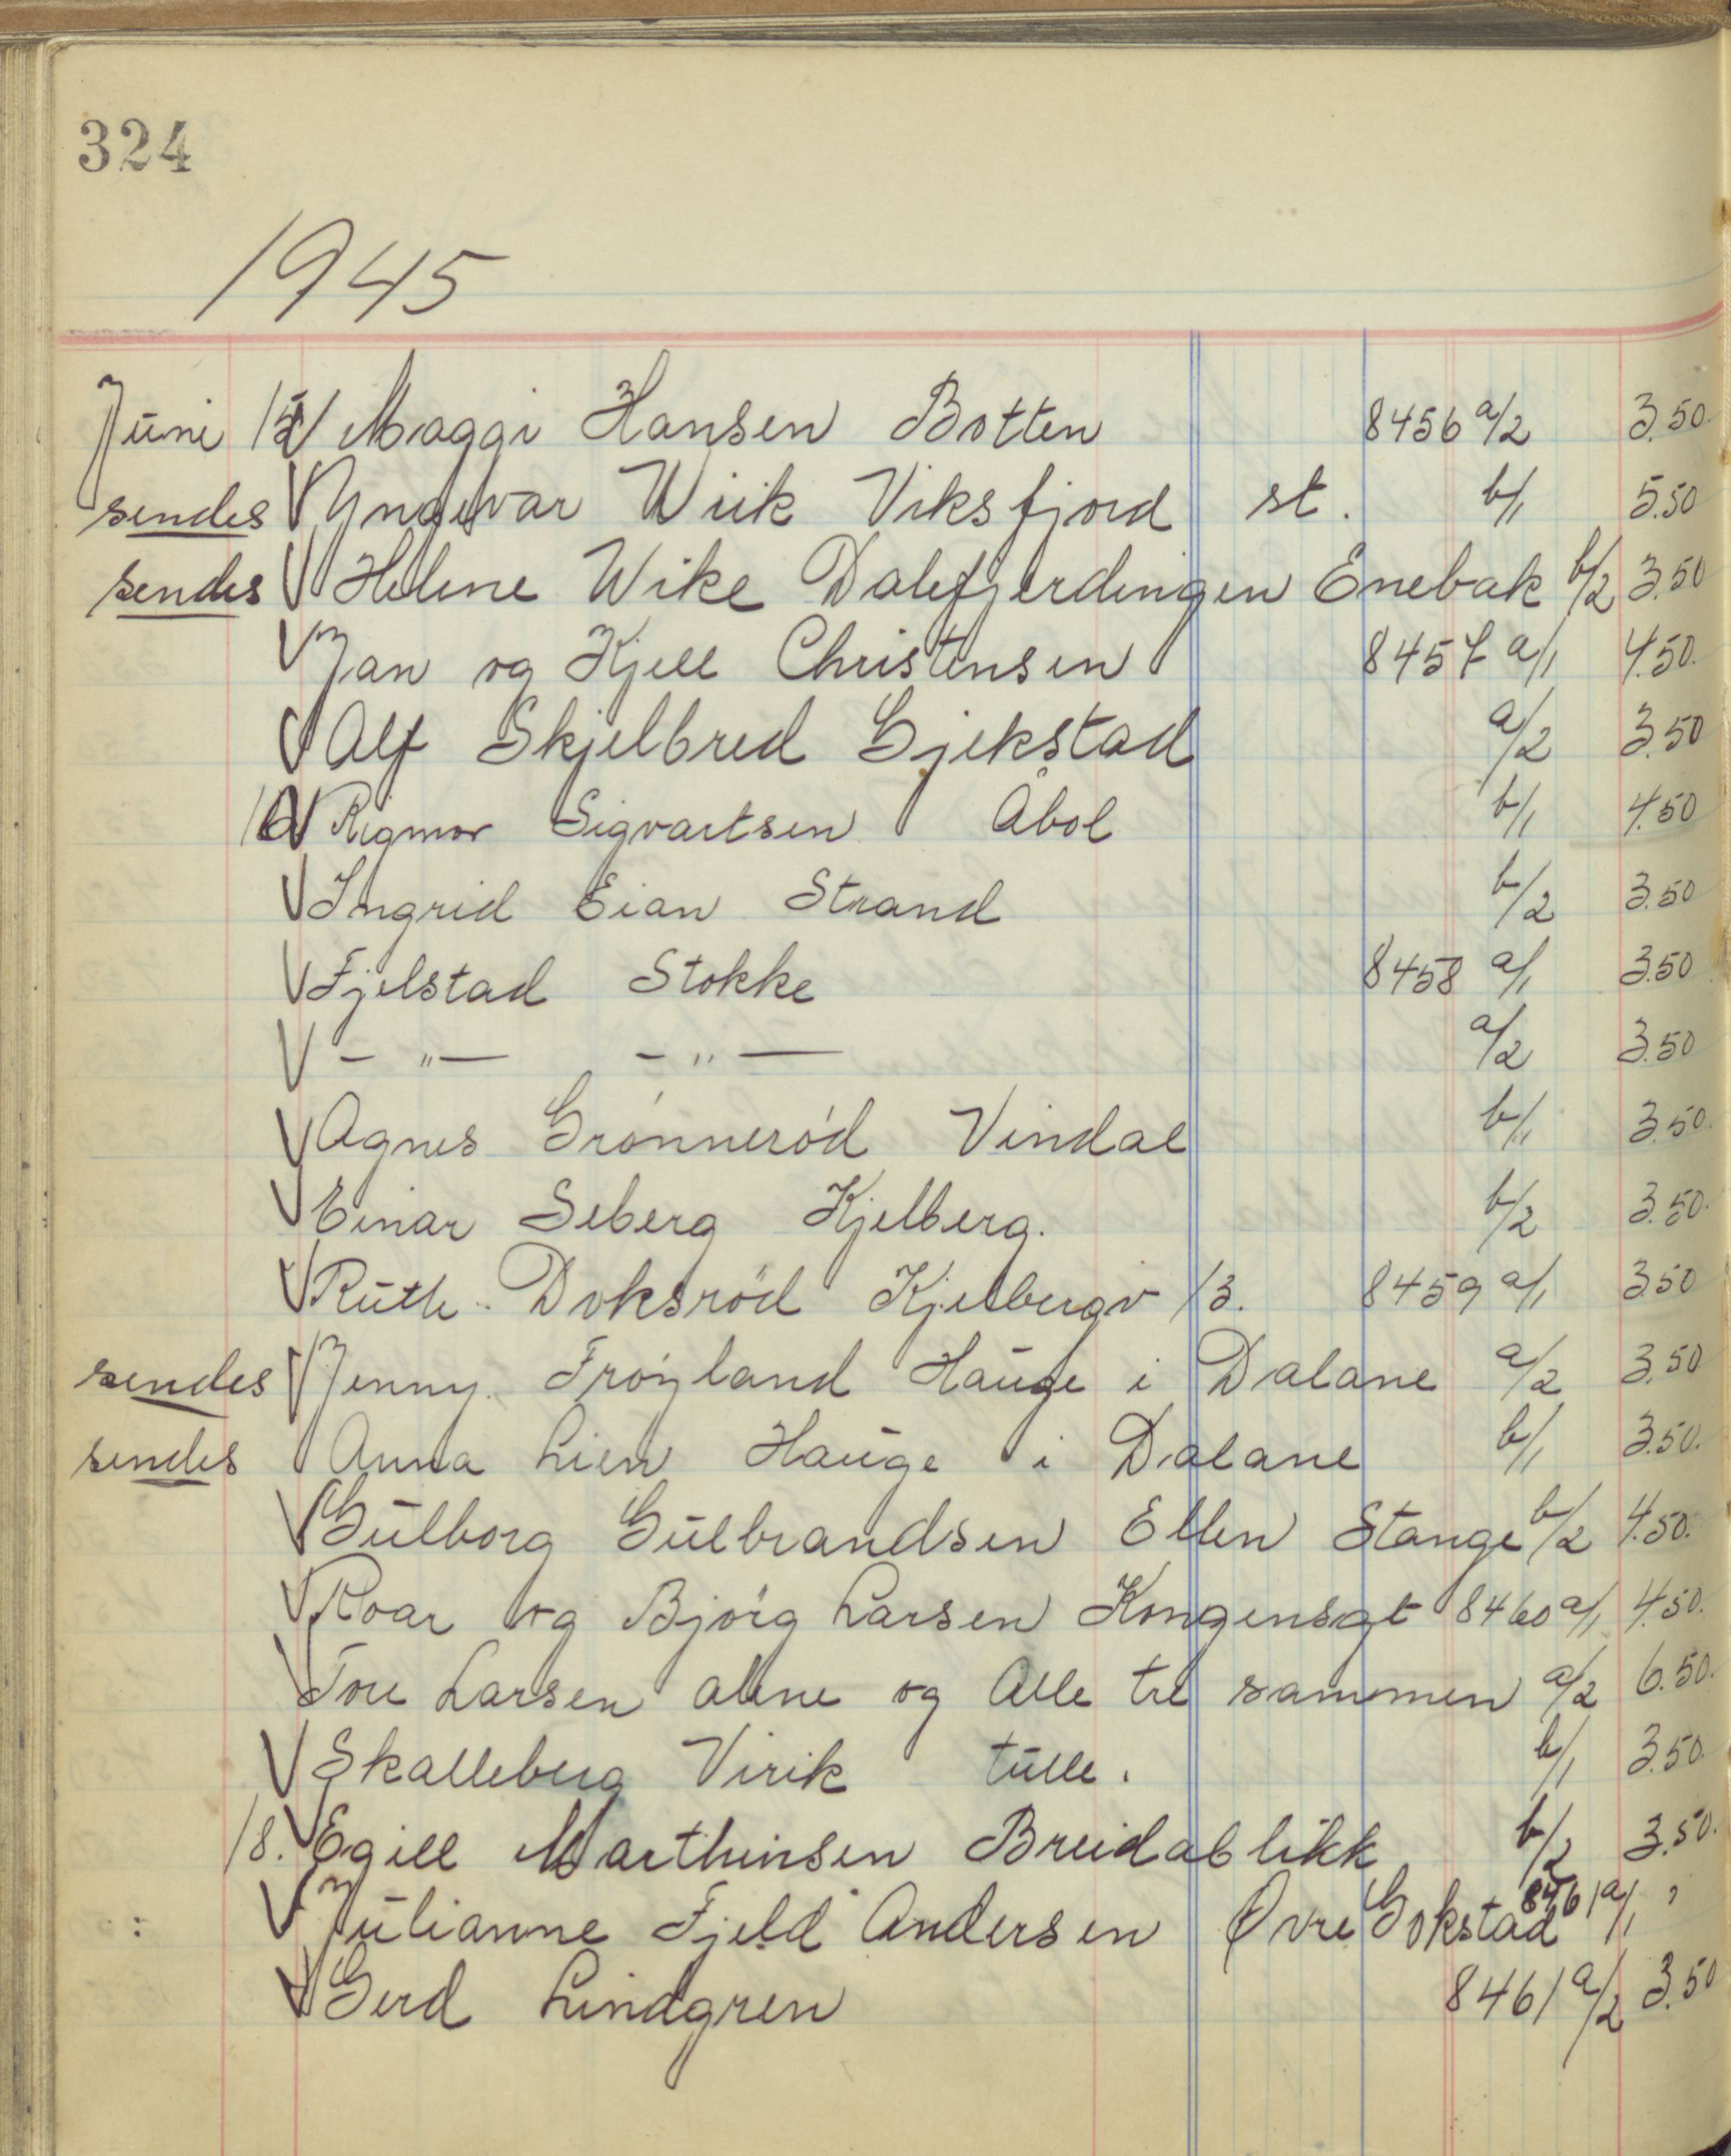 324
1945
Juni 15 V Maggi Hansen Botten 8456 a/2 3.50.
sendes V Yngvar Wiik Viksfjord st. b/1 5.50
sendes V Helene Wike Dalefjerdingen Enebak b/2 3.50
V Jan og Kjell Christensen 8457 a/1 4.50.
V Alf Skjelbred Gjekstad a/2 3.50
16 V Rigmor Sigvartsen Åbol b/1 4.50
V Ingrid Eian Strand b/2 3.50
V Fjelstad Stokke 8458 a/1 3.50
V - " — - " — a/2 3.50
V Agnes Grønnerød Vindal b/1 3.50.
V Einar Seberg Kjelberg. b/2 3.50.
V Ruth Doksrød Kjelbergv 13. 8459 a/1 3.50
sendes V Jenny Frøyland Hauge i Dalane a/2 3.50
sendes Anna Lien Hauge i Dalane b/1 3.50.
V Gulborg Gulbrandsen Ellen Stange b/2 4.50.
V Roar og Bjørg Larsen Kongensgt 8460 a/1 4.50.
V Tore Larsen alene og Alle tre sammen a/2 6.50.
V Skalleberg Virik tulle. b/1 3.50.
18. V Egill Marthinsen Breidablikk b/2 3.50.
V Julianne Fjeld Andersen Øvre Gokstad 8461 a/1 "
V Gerd Lindgren 8461 a/2 3.50